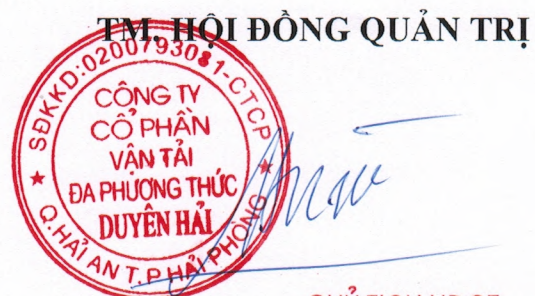 TM. HỘI ĐỒNG QUẢN TRỊ
SĐKKD:0200793081-CTCP
CÔNG TY
CỔ PHẦN
VẬN TẢI
ĐA PHƯƠNG THỨC
DUYÊN HẢI
Q.HẢI AN T.P HẢI PHÒNG